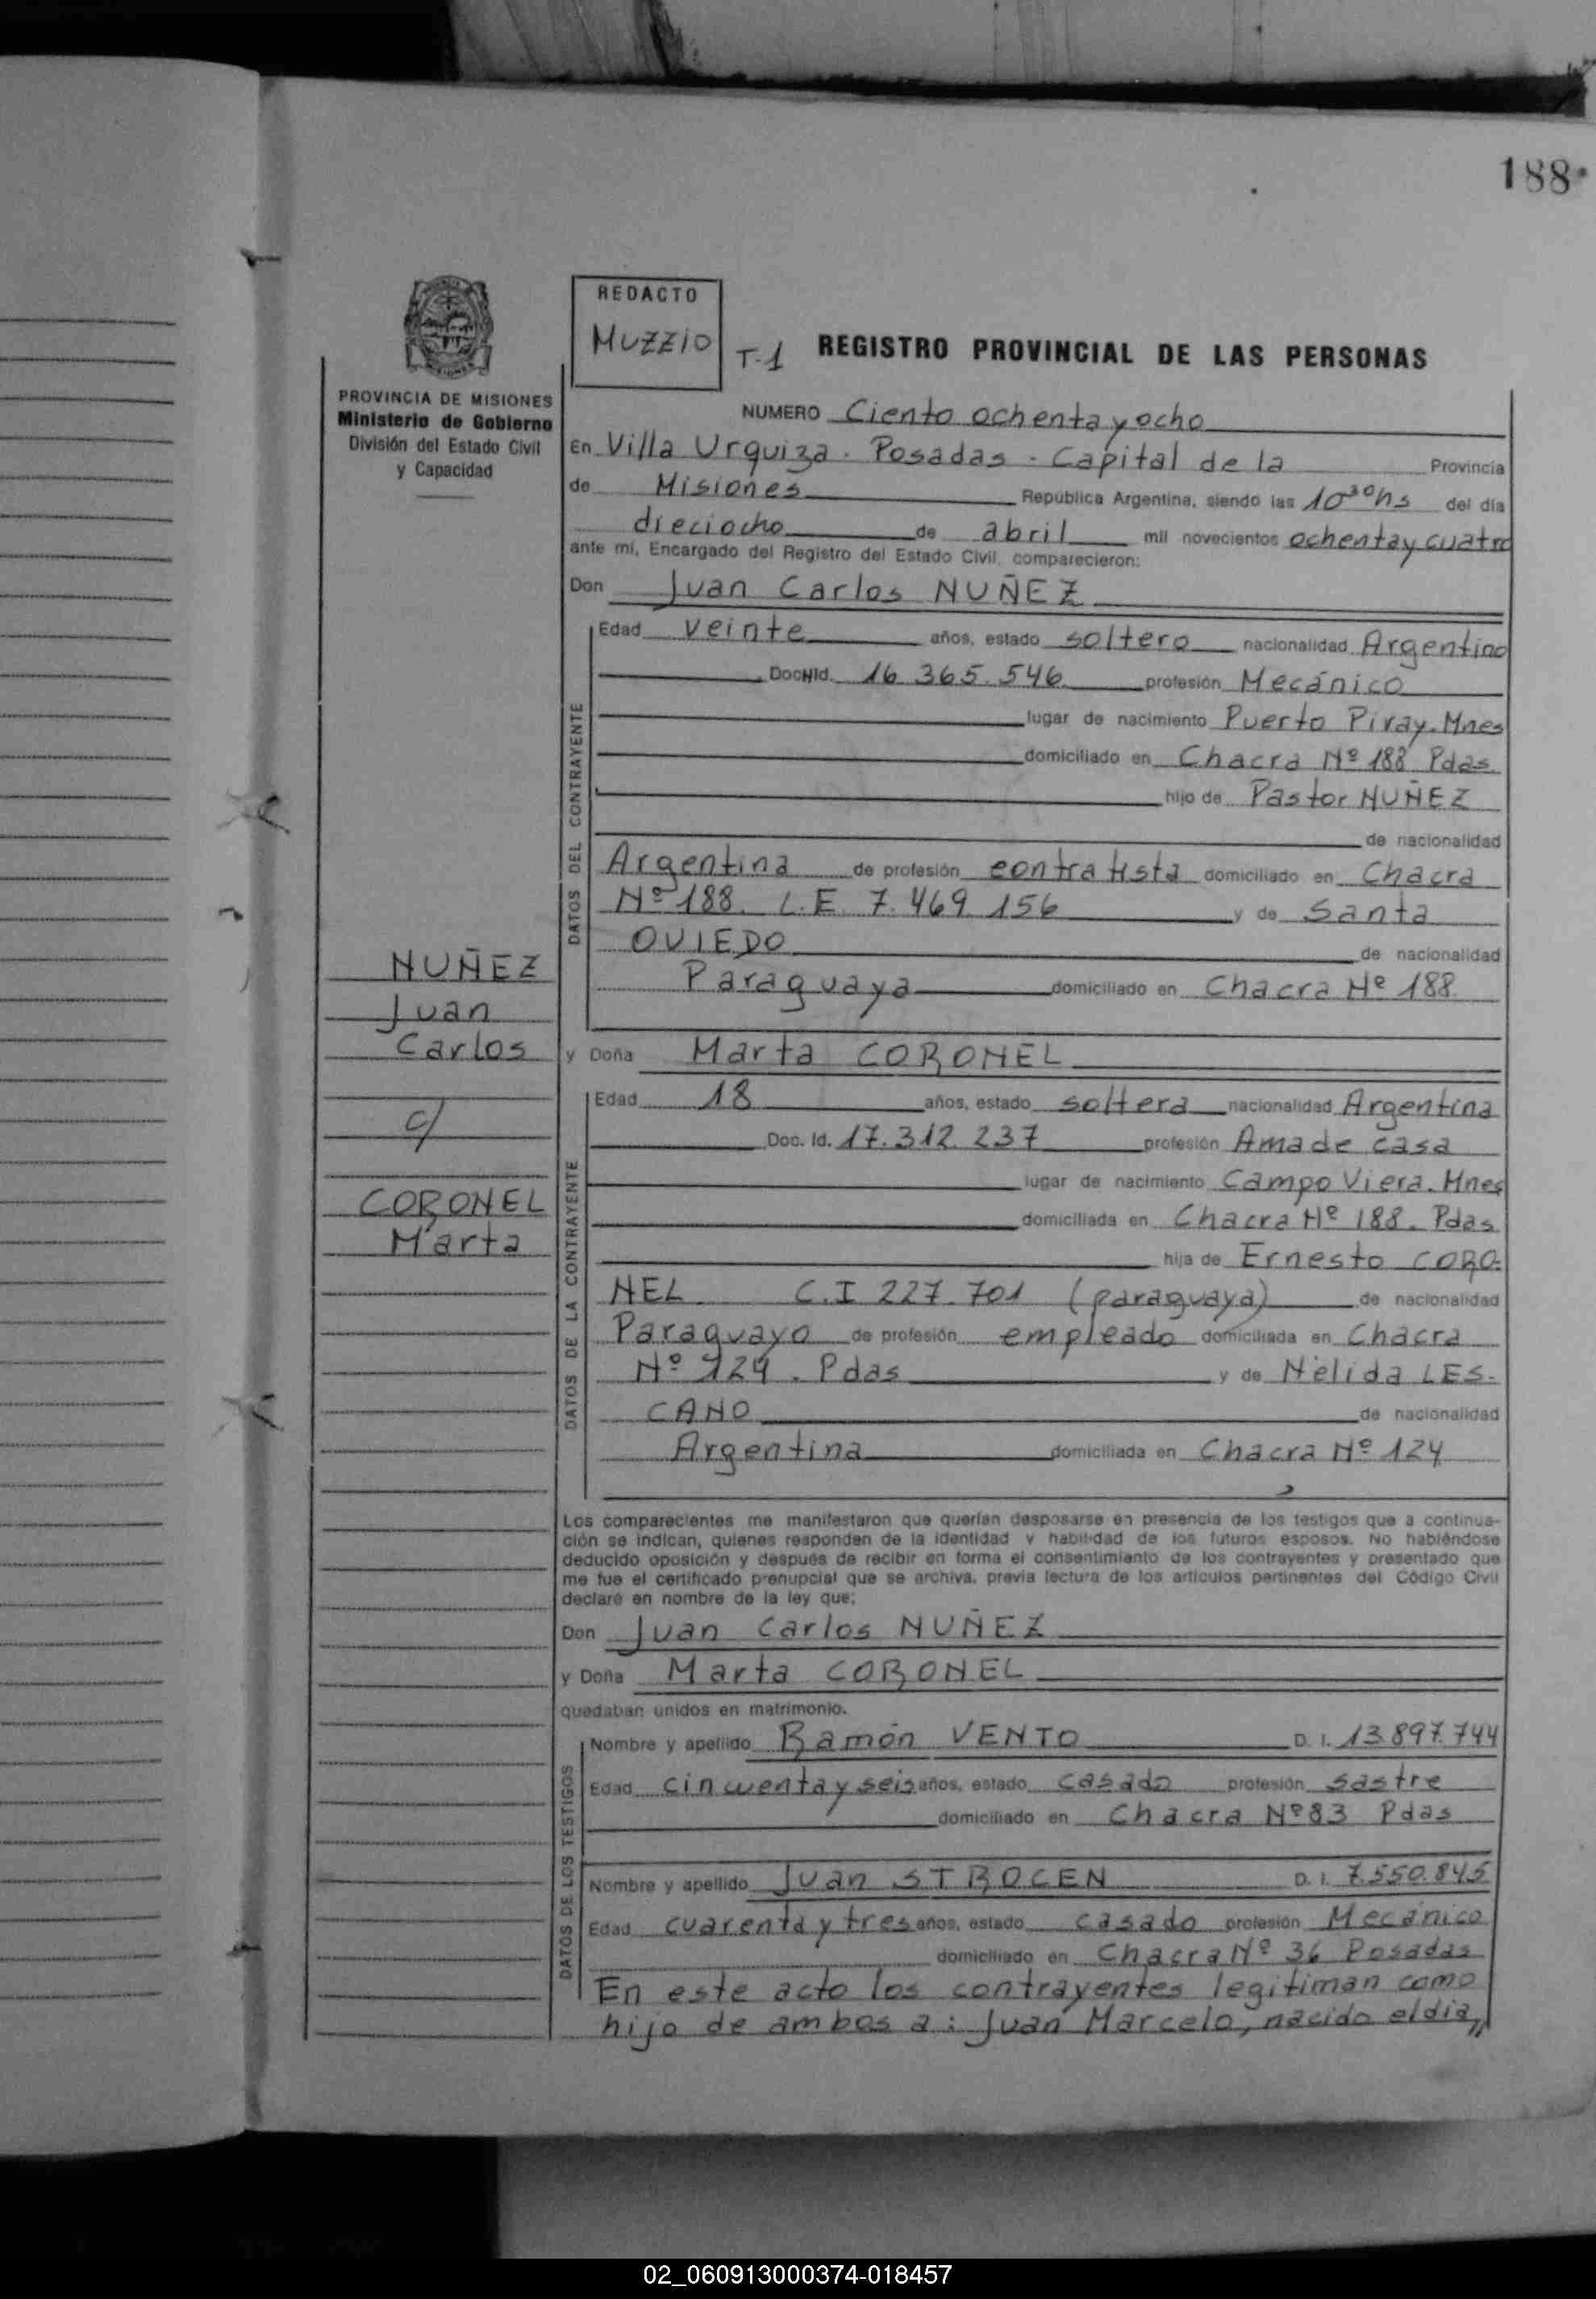 188
REDACTO
MUZZIO
T-1 REGISTRO PROVINCIAL DE LAS PERSONAS
PROVINCIA DE MISIONES
Ministerio de Gobierno
División del Estado Civil
y Capacidad
NUMERO Ciento ochenta y ocho
En Villa Urquiza - Posadas - Capital de la Provincia
de Misiones República Argentina, siendo las 10³⁰hs del día
dieciocho de abril mil novecientos ochenta y cuatro
ante mi, Encargado del Registro del Estado Civil, comparecieron:
Don Juan Carlos NUÑEZ
DATOS DEL CONTRAYENTE
Edad veinte años, estado soltero nacionalidad Argentino
Doc. Id. 16.365.546 profesión Mecánico
lugar de nacimiento Puerto Piray. Mnes
domiciliado en Chacra Nº 188 Pdas.
hijo de Pastor NUÑEZ
de nacionalidad
Argentina de profesión contratista domiciliado en Chacra
Nº 188. L.E. 7.469.156 y de Santa
OVIEDO de nacionalidad
Paraguaya domiciliado en Chacra Nº 188
NUÑEZ
Juan
Carlos
c/
CORONEL
Marta
y Doña Marta CORONEL
DATOS DE LA CONTRAYENTE
Edad 18 años, estado soltera nacionalidad Argentina
Doc. Id. 17.312.237 profesión Ama de casa
lugar de nacimiento Campo Viera. Mnes
domiciliada en Chacra Nº 188. Pdas.
hija de Ernesto CORO-
NEL C.I 227.701 (paraguaya) de nacionalidad
Paraguayo de profesión empleado domiciliada en Chacra
Nº 124. Pdas y de Nélida LES-
CANO de nacionalidad
Argentina domiciliada en Chacra Nº 124
Los comparecientes me manifestaron que querían desposarse en presencia de los testigos que a continua-
ción se indican, quienes responden de la identidad y habilidad de los futuros esposos. No habiéndose
deducido oposición y después de recibir en forma el consentimiento de los contrayentes y presentado que
me fue el certificado prenupcial que se archiva, previa lectura de los artículos pertinentes del Código Civil
declaré en nombre de la ley que:
Don Juan Carlos NUÑEZ
y Doña Marta CORONEL
quedaban unidos en matrimonio.
DATOS DE LOS TESTIGOS
Nombre y apellido Ramón VENTO D. I. 13.897.744
Edad cincuenta y seis años, estado casado profesión sastre
domiciliado en Chacra Nº 83 Pdas
Nombre y apellido Juan STROCEN D. I. 7.550.845
Edad cuarenta y tres años, estado casado profesión Mecánico
domiciliado en Chacra Nº 36 Posadas
En este acto los contrayentes legitiman como
hijo de ambos a: Juan Marcelo, nacido el día,,
02_060913000374-018457